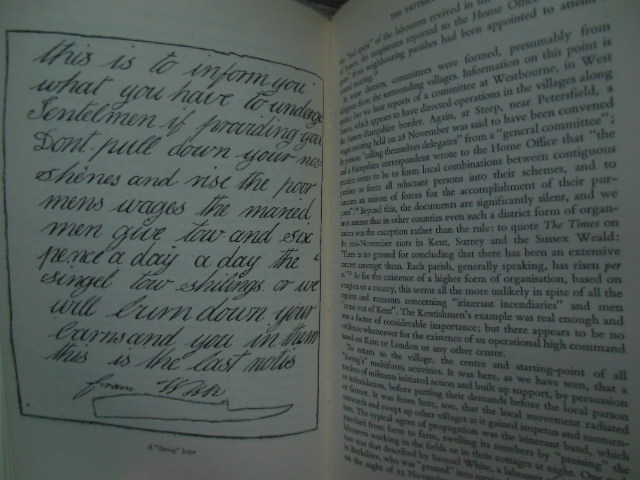 this is to inform you
what you have to undergo
Jentelmen if providing you
Dont pull down your
shenes and rise the poor
mens wages the maried
men give tow and six
pence a day a day the
singel tow shilings or we
will burn down your
barns and you in them
this is the last notis
from
A "Swing" letter
THE PATTERN
of the labourers revived in the
magistrates reported to the Home Office
from neighbouring parishes had been appointed to attend
In some districts, committees were formed, presumably from
from the surrounding villages. Information on this point is
but we hear reports of a committee at Westbourne, in West
Sussex, which appears to have directed operations in the villages along
the Sussex-Hampshire border. Again, at Steep, near Petersfield, a
meeting held on 28 November was said to have been convened
by persons "calling themselves delegates" from a "general committee";
and a Hampshire correspondent wrote to the Home Office that "the
practice seems to be to form local combinations between contiguous
parishes to force all reluctant persons into their schemes, and to
an union of forces for the accomplishment of their pur-
Beyond this, the documents are significantly silent, and we
that in other counties even such a district form of organ-
was the exception rather than the rule: to quote The Times on
the mid-November riots in Kent, Surrey and the Sussex Weald:
is no ground for concluding that there has been an extensive
amongst them. Each parish, generally speaking, has risen per
As for the existence of a higher form of organisation, based on
a region or a county, this seems all the more unlikely in spite of all the
reports and rumours concerning "itinerant incendiaries" and men
out of Kent". The Kentishmen's example was real enough and
was a factor of considerable importance; but there appears to be no
evidence whatsoever for the existence of an operational high command
based on Kent or London or any other centre.
To return to the village, the centre and starting-point of all
"Swing's" multiform activities. It was here, as we have seen, that a
nucleus of militants initiated action and built up support, by persuasion
or intimidation, before putting their demands before the local parson
or farmer. It was from here, too, that the local movement radiated
outwards and swept up other villages as it gained impetus and momen-
tum. The typical agent of propagation was the itinerant band, which
marched from farm to farm, swelling its numbers by "pressing" the
labourers working in the fields or in their cottages at night. One
was that described by Samuel White, a labourer
in Berkshire, who was "pressed" into
the night of 15 November